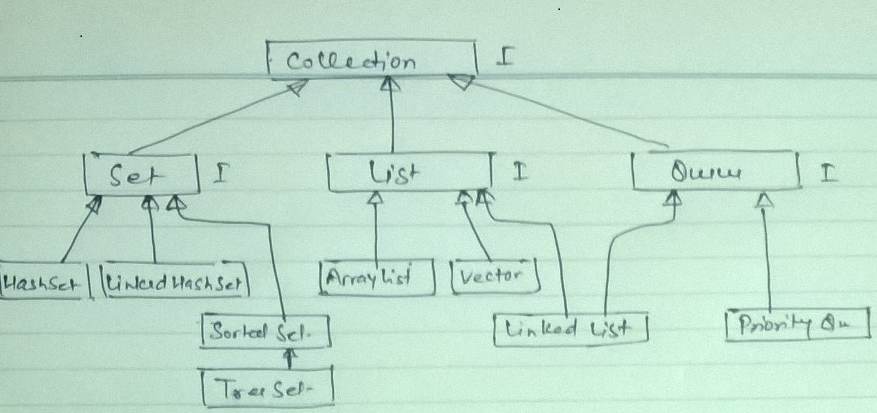 Collection I
Set I
List I
Queue I
HashSet
LinkedHashSet
ArrayList
Vector
Sorted Set
Linked List
Priority Qu
Tree Set